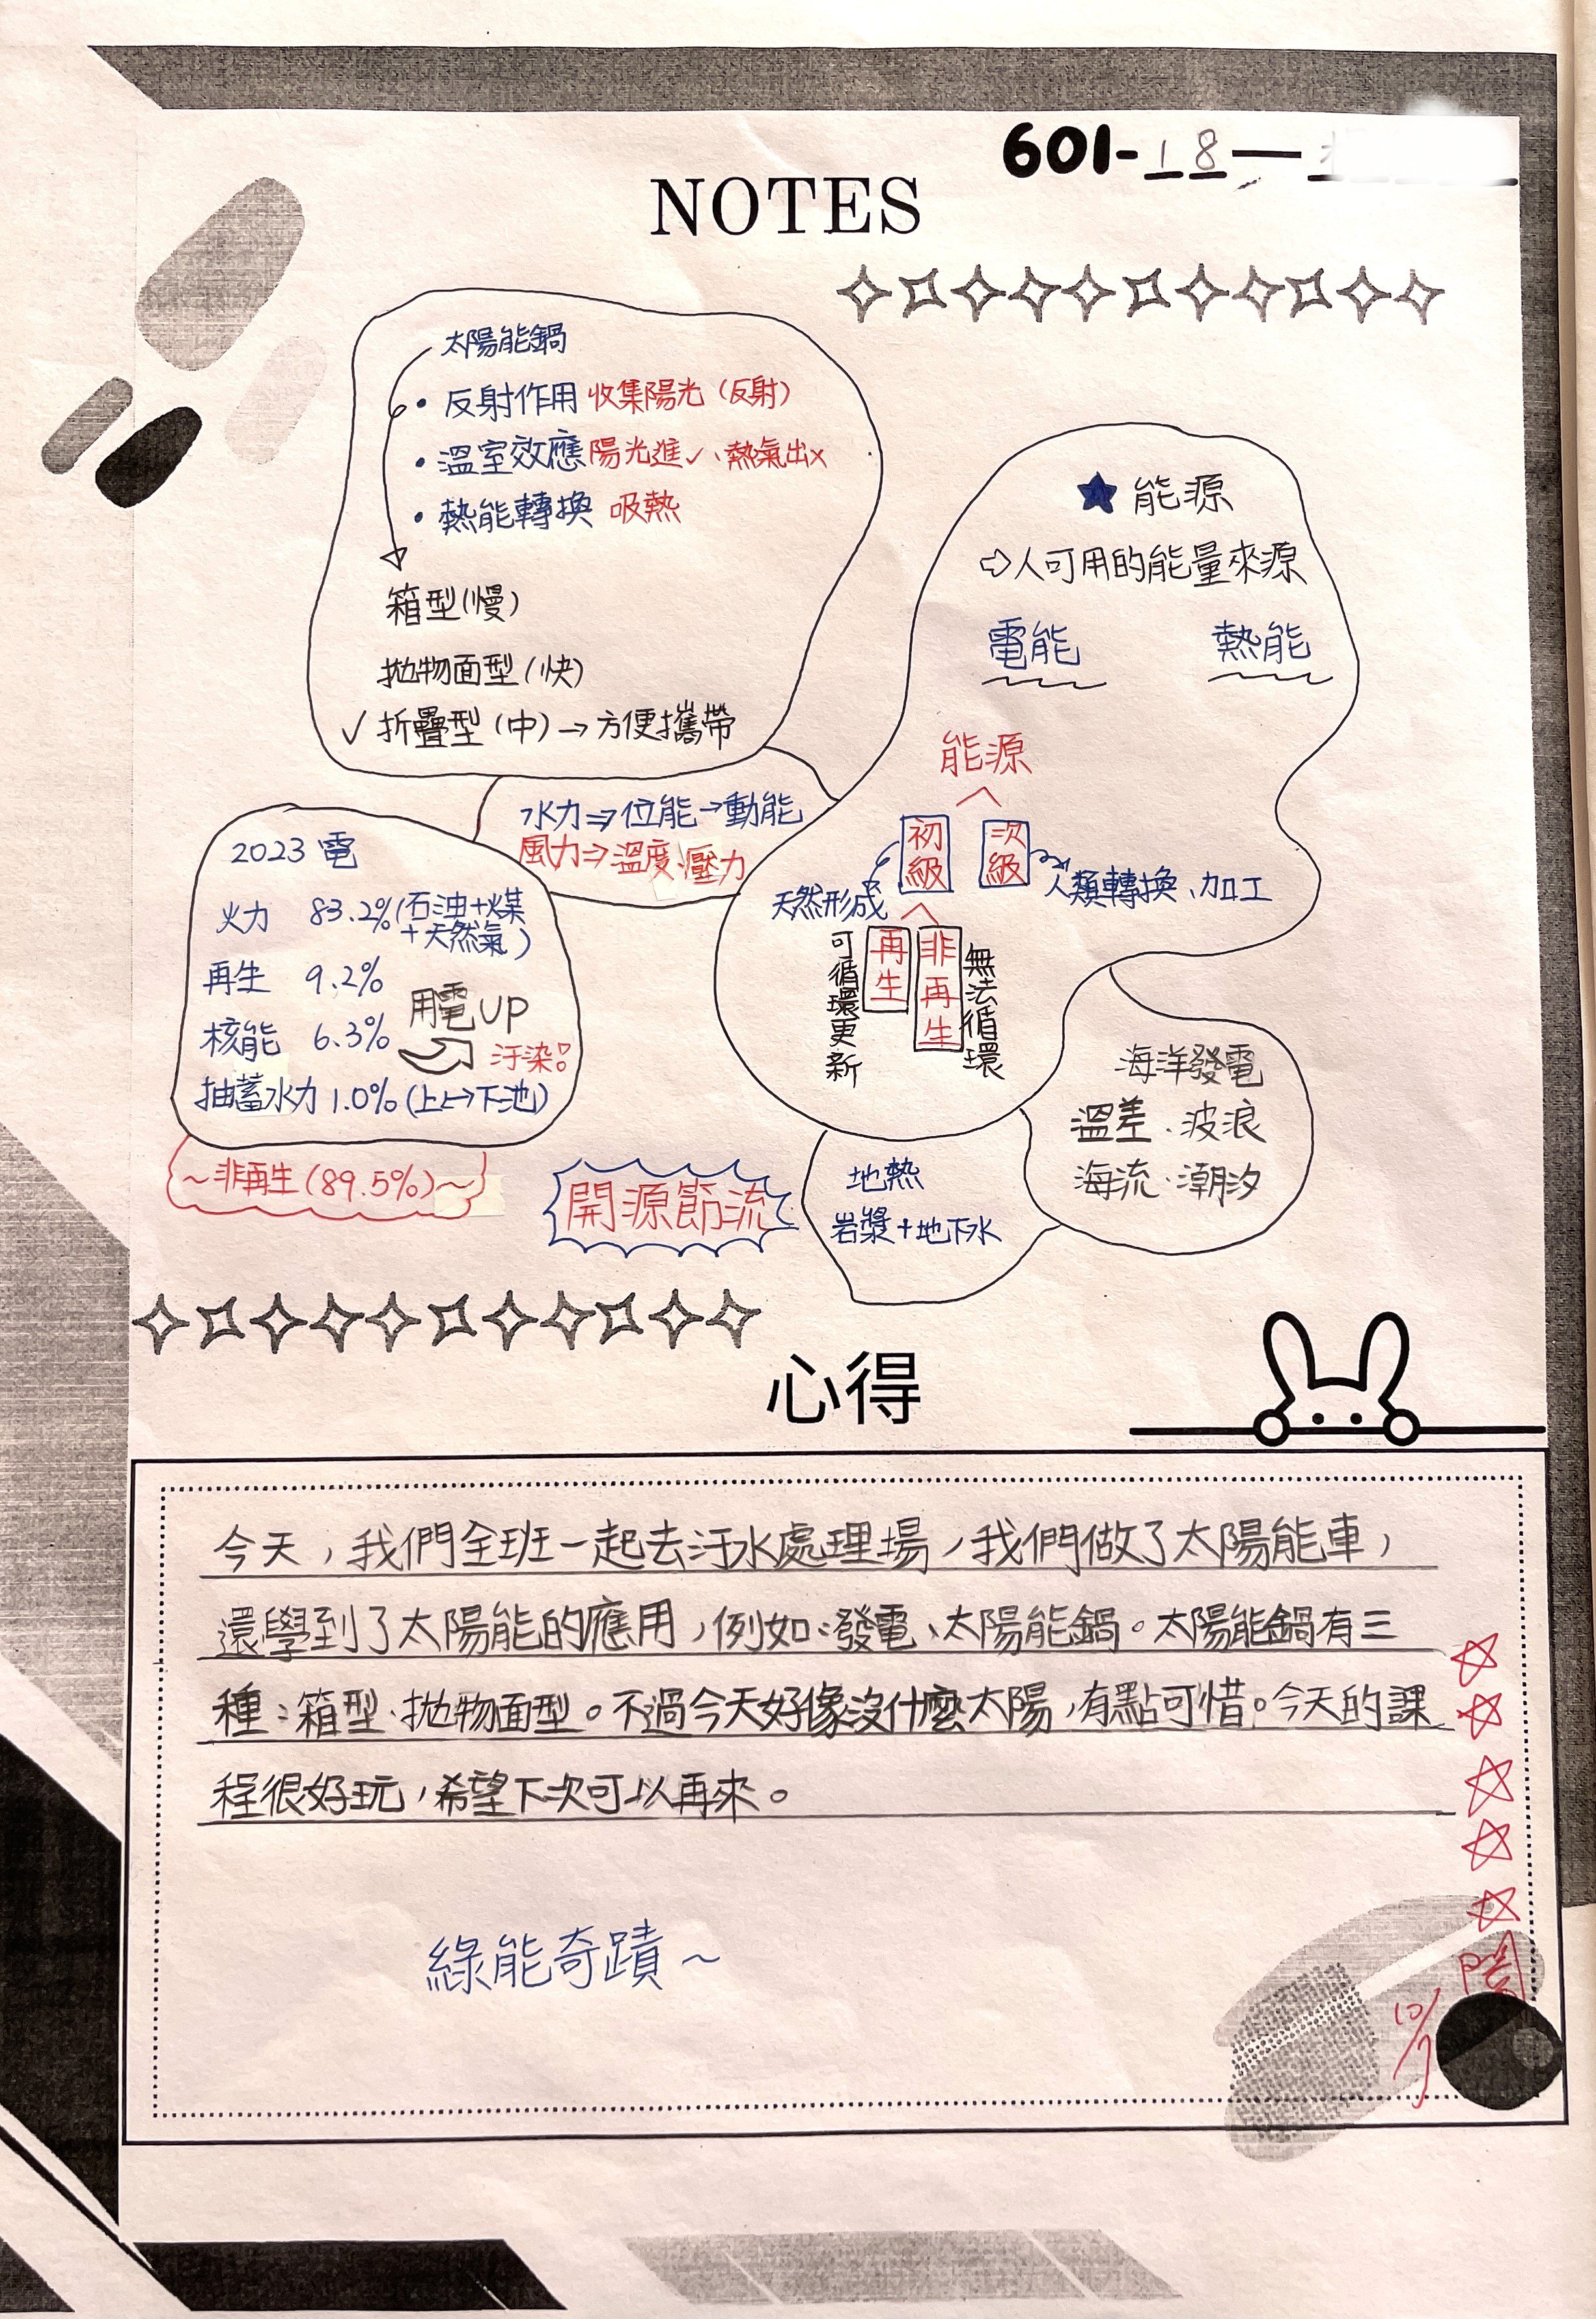 601-18-
NOTES
太陽能鍋
• 反射作用 收集陽光（反射）
• 溫室效應 陽光進✓、熱氣出x
• 熱能轉換 吸熱
箱型（慢）
拋物面型（快）
✓ 折疊型（中）→方便攜帶
★ 能源
⇨人可用的能量來源
電能 熱能
能源
初級 次級
天然形成 人類轉換、加工
可循環更新 再生 非再生 無法循環
水力⇒位能→動能
風力⇒溫度、壓力
2023 電
火力 83.2%(石油+煤
+天然氣)
再生 9.2%
用電UP
核能 6.3%
汙染!
抽蓄水力 1.0%(上→下池)
~非再生(89.5%)~
開源節流
海洋發電
溫差、波浪
海流、潮汐
地熱
岩漿+地下水
心得
今天，我們全班一起去汙水處理場，我們做了太陽能車，
還學到了太陽能的應用，例如：發電、太陽能鍋。太陽能鍋有三
種：箱型、拋物面型。不過今天好像沒什麼太陽，有點可惜。今天的課
程很好玩，希望下次可以再來。
綠能奇蹟~
閱
10/7